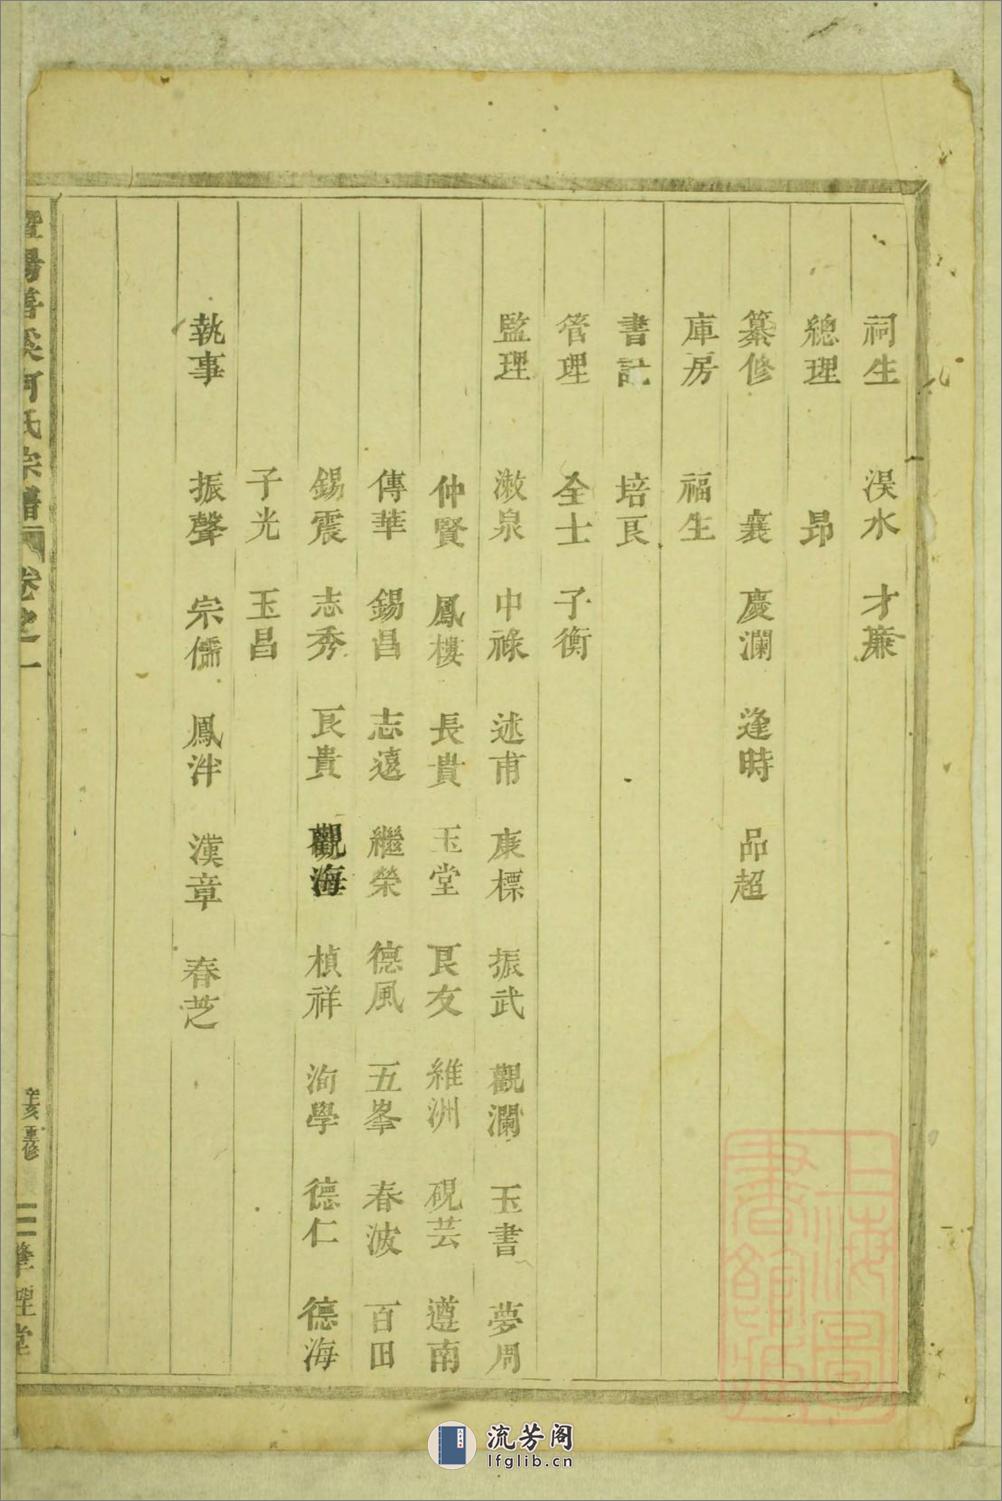 祠生 淏水 才廉
總理 昂
纂修 襄 慶瀾 逢時 品超
庫房 福生
書記 培良
管理 全士 子衡
監理 漱泉 中祿 述甫 康標 振武 觀瀾 玉書 夢周
仲賢 鳳樓 長貴 玉堂 良友 維洲 硯芸 遵南
傳華 錫昌 志遠 繼榮 德風 五峯 春波 百田
錫震 志秀 良貴 觀海 楨祥 洵學 德仁 德海
子光 玉昌
執事 振聲 宗儒 鳳泮 漢章 春芝
暨陽善溪何氏宗譜 卷之一
辛亥重修
三 肇理堂
上海圖書館藏
流芳阁
lfglib.cn